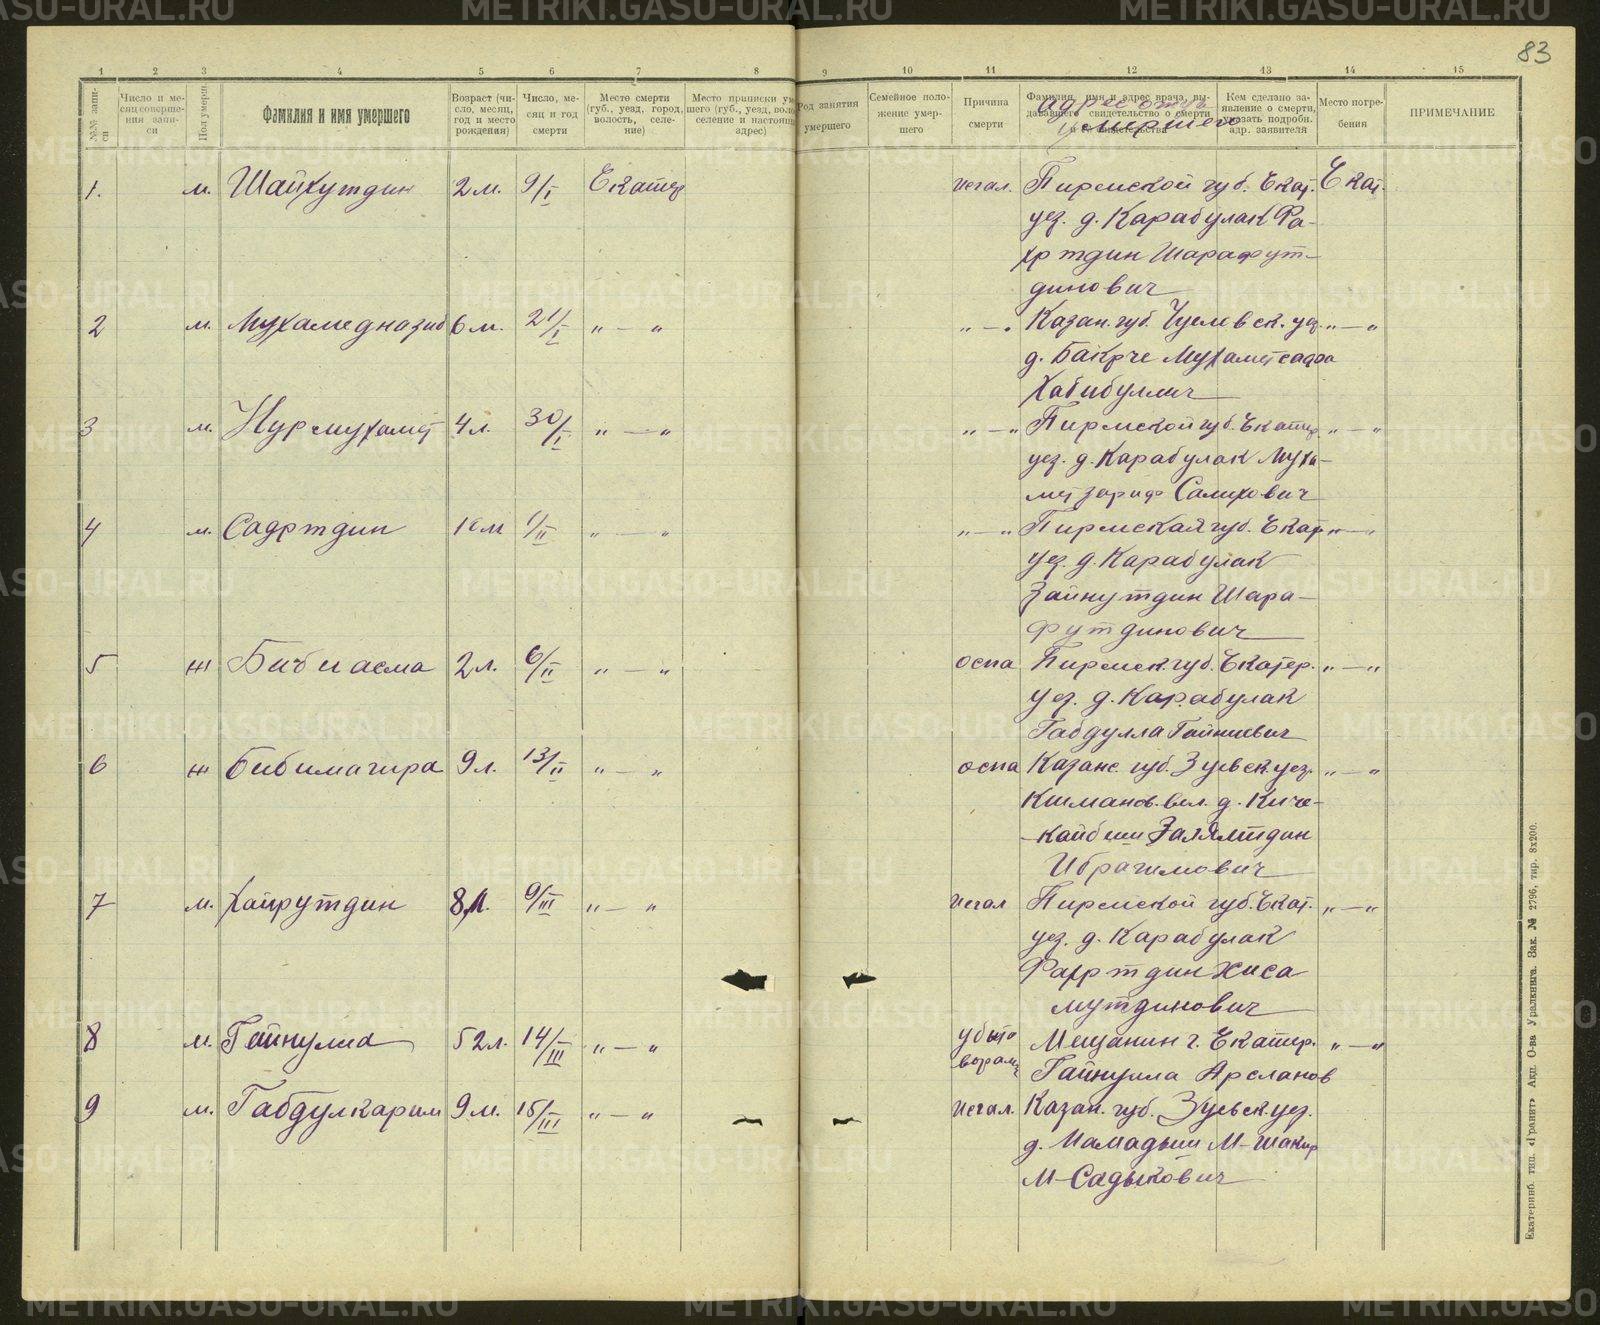 83
1 2 3 4 5 6 7 8 9 10 11 12 13 14 15
№№ запи-
си
Число и ме-
сяц соверше-
ния запи-
си
Пол умерш.
Фамилия и имя умершего
Возраст (чи-
сло, месяц,
год и место
рождения)
Число, ме-
сяц и год
смерти
Место смерти
(губ., уезд, город,
волость, селе-
ние)
Место приписки ум
шего (губ., уезд, воло
селение и настоящ
адрес)
Род занятия
умершего
Семейное поло-
жение умер-
шего
Причина
смерти
Фамилия, имя и адрес врача, вы-
дававшего свидетельство о смерти
и № свидетельства
адрес отца
умершего
Кем сделано за-
явление о смерти,
указать подробн.
адр. заявителя
Место погре-
бения
ПРИМЕЧАНИЕ
1. м. Шайхутдин 2 м. 9/I Екатер Пермской губ. Екат. Екат.
уез. д. Карабулак Фа-
хртдин Шарафут-
динович
2 м. Мухамедназиб 6 м. 21/I „ — „ „ — „ Казан. губ. уез. „ — „
д. Мухаметсафа
Хабибуллич
3 м. Нурмухамет 4 л. 30/I „ — „ „ — „ Пермской губ. Екатер. „ — „
уез. д. Карабулак Муха-
метзариф Салихович
4 м. Садртдин 1/II „ — „ „ — „ Пермская губ. Екатр „ — „
уез. д. Карабулак
Зайнутдин Шара-
футдинович
5 ж Бибиасма 2 л. 6/II „ — „ оспа Пермск. губ. Екатер. „ — „
уез. д. Карабулак
Габдулла
6 ж Бибимагира 9 л. 13/II „ — „ оспа Казанс. губ. уез. „ — „
вол. д. Киче-
Ибрагимович
7 м. Хайрутдин 8 9/III „ — „ Пермской губ. Екат. „ — „
уез. д. Карабулак
Фахртдин Хиса
мутдинович
8 м. Гайнулла 52 л. 14/III „ — „ убыто Мещанин г. Екатер. „ — „
ворами
Гайнулла Арсланов
9 м. Габдулкарим 9 м. 15/III „ — „ Казан. губ. уез.
д. Мамадыш М-Шакир
М-Садыкович
Екатеринб. тип. «Гранит» Акп. О-ва Уралкнига. Зак. № 2796, тир. 8х200.
METRIKI.GASO-URAL.RU